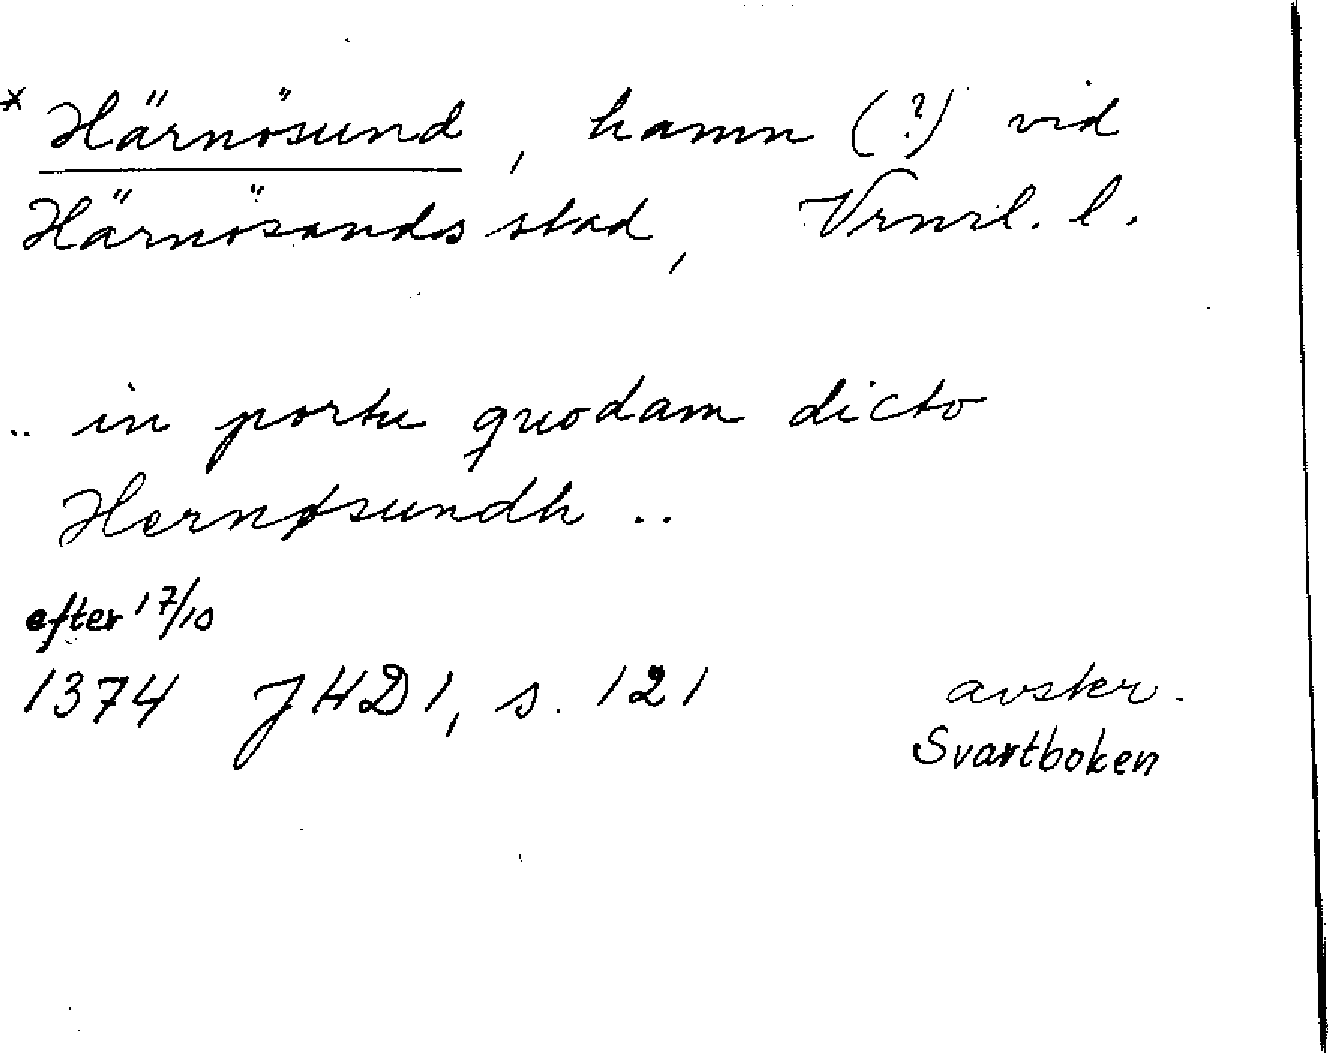 * Härnösund, hamn (?) vid
Härnösands stad, Vrnrl. l.
.. in portu quodam dicto
Hernøsundh ..
efter 17/10
1374 JHD 1, s. 121 avskr.
Svartboken